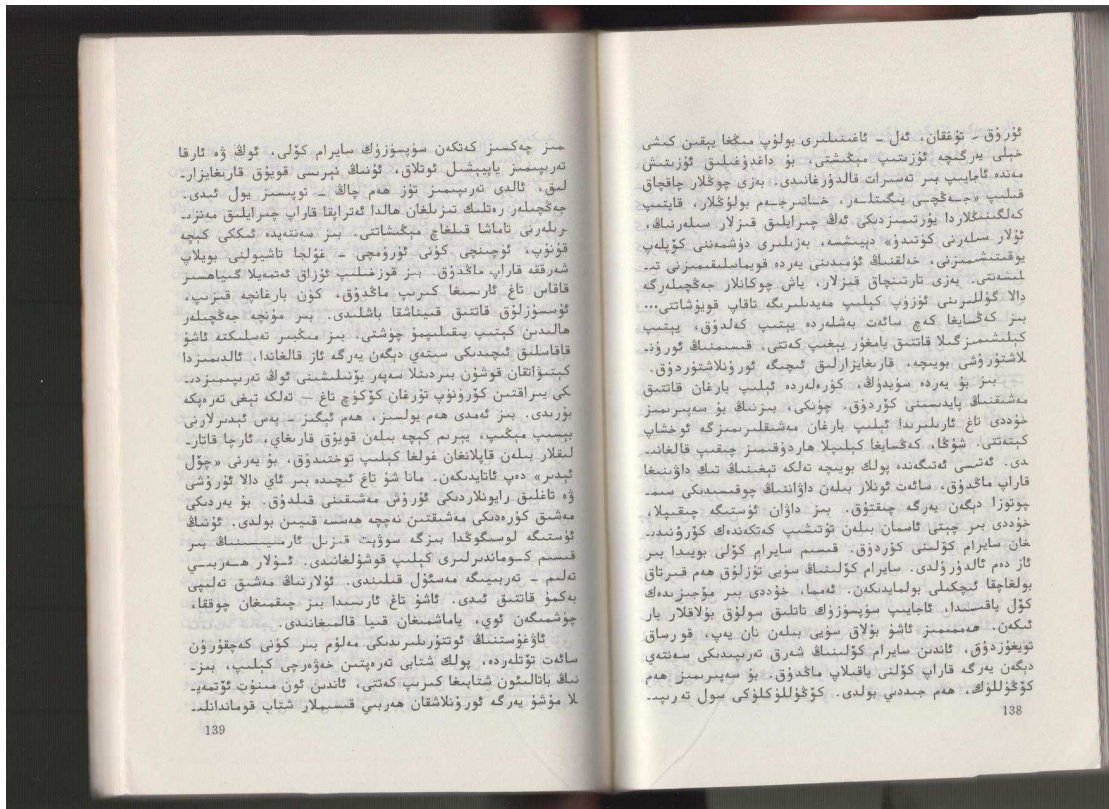 ئۇرۇق - تۇغقان، ئەل - ئاغىنىلىرى بولۇپ مىڭغا يېقىن كىشى
خېلى يەرگىچە ئۇزىتىپ مېڭىشتى، بۇ داغدۇغىلىق ئۇزىتىش
مەندە ئاجايىپ بىر تەسىرات قالدۇرغانىدى. بەزى چوڭلار چاقچاق
قىلىپ «جەڭچى يىگىتلەر، خاتىرجەم بولۇڭلار، قايتىپ
كەلگىنىڭلاردا يۇرتىمىزدىكى ئەڭ چىرايلىق قىزلار سىلەرنىڭ،
ئۇلار سىلەرنى كۈتىدۇ» دېيىشسە، بەزىلىرى دۈشمەننى كۆپلەپ
يوقىتىشىمىزنى، خەلقنىڭ ئۈمىدىنى يەردە قويماسلىقىمىزنى تە-
لىشەتتى. بەزى تارتىنچاق قىزلار، ياش چوكانلار جەڭچىلەرگە
دالا گۈللىرىنى ئۈزۈپ كېلىپ مەيدىلىرىگە تاقاپ قويۇشاتتى...
بىز كەڭسايغا كەچ سائەت بەشلەردە يېتىپ كەلدۇق، يېتىپ
كېلىشىمىزگىلا قاتتىق يامغۇر يېغىپ كەتتى. قىسىمنىڭ ئورۇن-
لاشتۇرۇشى بويىچە، قارىغايزارلىق ئىچىگە ئورۇنلاشتۇردۇق.
بىز بۇ يەردە سۈيدۈڭ، كۈرەلەردە ئېلىپ بارغان قاتتىق
مەشىقنىڭ پايدىسىنى كۆردۇق. چۈنكى، بىزنىڭ بۇ سەپىرىمىز
خۇددى تاغ ئارىلىرىدا ئېلىپ بارغان مەشىقلىرىمىزگە ئوخشاپ
كېتەتتى. شۇڭا، كەڭسايغا كېلىپلا ھاردۇقىمىز چىقىپ قالغانى-
دى. ئەتىسى ئەتىگەندە پولك بويىچە تەلكە تېغىنىڭ تىك داۋىنىغا
قاراپ ماڭدۇق، سائەت ئونلار بىلەن داۋاننىڭ چوققىسىدىكى سىم-
پوتوزا دېگەن يەرگە چىقتۇق. بىز داۋان ئۈستىگە چىقىپلا،
خۇددى بىر چېتى ئاسمان بىلەن تۇتىشىپ كەتكەندەك كۆرۈنىدى-
غان سايرام كۆلىنى كۆردۇق. قىسىم سايرام كۆلى بويىدا بىر
ئاز دەم ئالدۇرۇلدى. سايرام كۆلىنىڭ سۈيى تۇزلۇق ھەم قىرتاق
بولغاچقا ئىچكىلى بولمايدىكەن. ئەمما، خۇددى بىر مۆجىزىدەك
كۆل ياقىسىدا، ئاجايىپ سۈپسۈزۈك تاتلىق سۇلۇق بۇلاقلار بار
ئىكەن. ھەممىمىز ئاشۇ بۇلاق سۈيى بىلەن نان يەپ، قورساق
تويغۇزدۇق، ئاندىن سايرام كۆلىنىڭ شەرق تەرىپىدىكى سەنتەي
دېگەن يەرگە قاراپ كۆلنى ياقىلاپ ماڭدۇق. بۇ سەپىرىمىز ھەم
كۆڭۈللۈك، ھەم جىددىي بولدى. كۆڭۈللۈكلۈكى سول تەرىپى-
138
مىز چەكسىز كەتكەن سۈپسۈزۈك سايرام كۆلى، ئوڭ ۋە ئارقا
تەرىپىمىز ياپيېشىل ئوتلاق، ئۇنىڭ نېرىسى قويۇق قارىغايزار-
لىق، ئالدى تەرىپىمىز تۈز ھەم چاڭ - توپىسىز يول ئىدى.
جەڭچىلەر رەتلىك تىزىلغان ھالدا ئەتراپقا قاراپ چىرايلىق مەنزى-
رىلەرنى تاماشا قىلغاچ مېڭىشاتتى. بىز سەنتەيدە ئىككى كېچە
قونۇپ، ئۈچىنچى كۈنى ئۈرۈمچى - غۇلجا تاشيولىنى بويلاپ
شەرققە قاراپ ماڭدۇق. بىز قوزغىلىپ ئۇزاق ئەتمەيلا گىياھسىز
قاقاس تاغ ئارىسىغا كىرىپ ماڭدۇق، كۈن بارغانچە قىزىپ،
ئۇسسۇزلۇق قاتتىق قىيناشقا باشلىدى. بىر مۇنچە جەڭچىلەر
ھالىدىن كېتىپ يىقىلىپمۇ چۈشتى. بىز مىڭبىر تەسلىكتە ئاشۇ
قاقاسلىق ئىچىدىكى سىتەي دېگەن يەرگە ئاز قالغاندا، ئالدىمىزدا
كېتىۋاتقان قوشۇن بىردىنلا سەپەر يۆنىلىشىنى ئوڭ تەرىپىمىزدى-
كى يىراقتىن كۆرۈنۈپ تۇرغان كۆكۈچ تاغ — تەلكە تېغى تەرەپكە
بۇرىدى. بىز ئەمدى ھەم يولسىز، ھەم ئېگىز - پەس ئېدىرلارنى
بېسىپ مېڭىپ، يېرىم كېچە بىلەن قويۇق قارىغاي، ئارچا قاتار-
لىقلار بىلەن قاپلانغان غولغا كېلىپ توختىدۇق، بۇ يەرنى «چۆل
ئېدىر» دەپ ئاتايدىكەن. مانا شۇ تاغ ئىچىدە بىر ئاي دالا ئۇرۇشى
ۋە تاغلىق رايونلاردىكى ئۇرۇش مەشىقىنى قىلدۇق. بۇ يەردىكى
مەشىق كۈرەدىكى مەشىقتىن نەچچە ھەسسە قىيىن بولدى. ئۇنىڭ
ئۈستىگە لوسىگوڭدا بىزگە سوۋېت قىزىل ئارمىيىسىنىڭ بىر
قىسىم كوماندىرلىرى كېلىپ قوشۇلغانىدى. ئۇلار ھەربىي
تەلىم - تەربىيىگە مەسئۇل قىلىندى. ئۇلارنىڭ مەشىق تەلىپى
بەكمۇ قاتتىق ئىدى. ئاشۇ تاغ ئارىسىدا بىز چىقمىغان چوققا،
چۈشمىگەن ئوي، ياماشمىغان قىيا قالمىغانىدى.
ئاۋغۇستنىڭ ئوتتۇرىلىرىدىكى مەلۇم بىر كۈنى كەچقۇرۇن
سائەت تۆتلەردە، پولك شتابى تەرەپتىن خەۋەرچى كېلىپ، بىز-
نىڭ باتالىئون شتابىغا كىرىپ كەتتى، ئاندىن ئون مىنۇت ئۆتمەي-
لا مۇشۇ يەرگە ئورۇنلاشقان ھەربىي قىسىملار شتاب قوماندانلى-
139